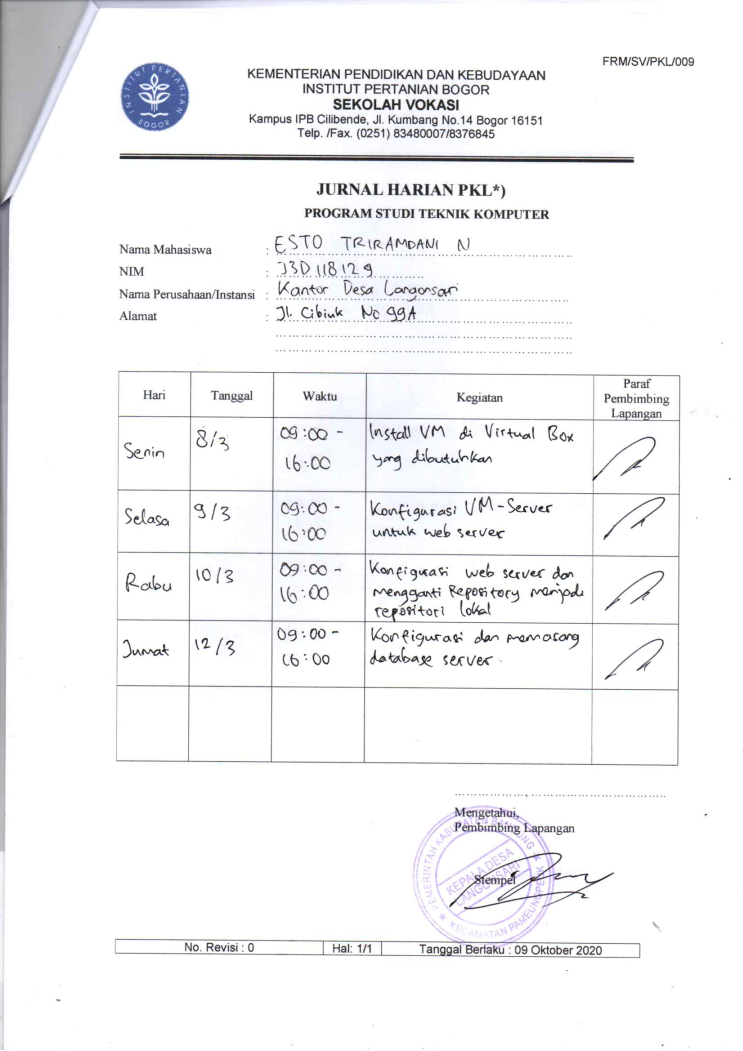 FRM/SV/PKL/009
INSTITUT PERTANIAN
BOGOR
KEMENTERIAN PENDIDIKAN DAN KEBUDAYAAN
INSTITUT PERTANIAN BOGOR
SEKOLAH VOKASI
Kampus IPB Cilibende, Jl. Kumbang No.14 Bogor 16151
Telp. /Fax. (0251) 83480007/8376845
JURNAL HARIAN PKL*)
PROGRAM STUDI TEKNIK KOMPUTER
Nama Mahasiswa : ESTO TRIRAMDANI N
NIM : J3D118129
Nama Perusahaan/Instansi : Kantor Desa Langonsari
Alamat : Jl. Cibiuk No 99A
Hari Tanggal Waktu Kegiatan Paraf
Pembimbing
Lapangan
Senin 8/3 09:00 - Install VM di Virtual Box
16:00 yang dibutuhkan
Selasa 9/3 09:00 - Konfigurasi VM-Server
16:00 untuk web server
Rabu 10/3 09:00 - Konfigurasi web server dan
16:00 mengganti Repository menjadi
repositori lokal
Jumat 12/3 09:00 - Konfigurasi dan memasang
16:00 database server.
Mengetahui,
Pembimbing Lapangan
Stempel
PEMERINTAH KABUPATEN BANDUNG
KEPALA DESA
LANGONSARI
KECAMATAN PAMEUNGPEUK
No. Revisi : 0 Hal: 1/1 Tanggal Berlaku : 09 Oktober 2020